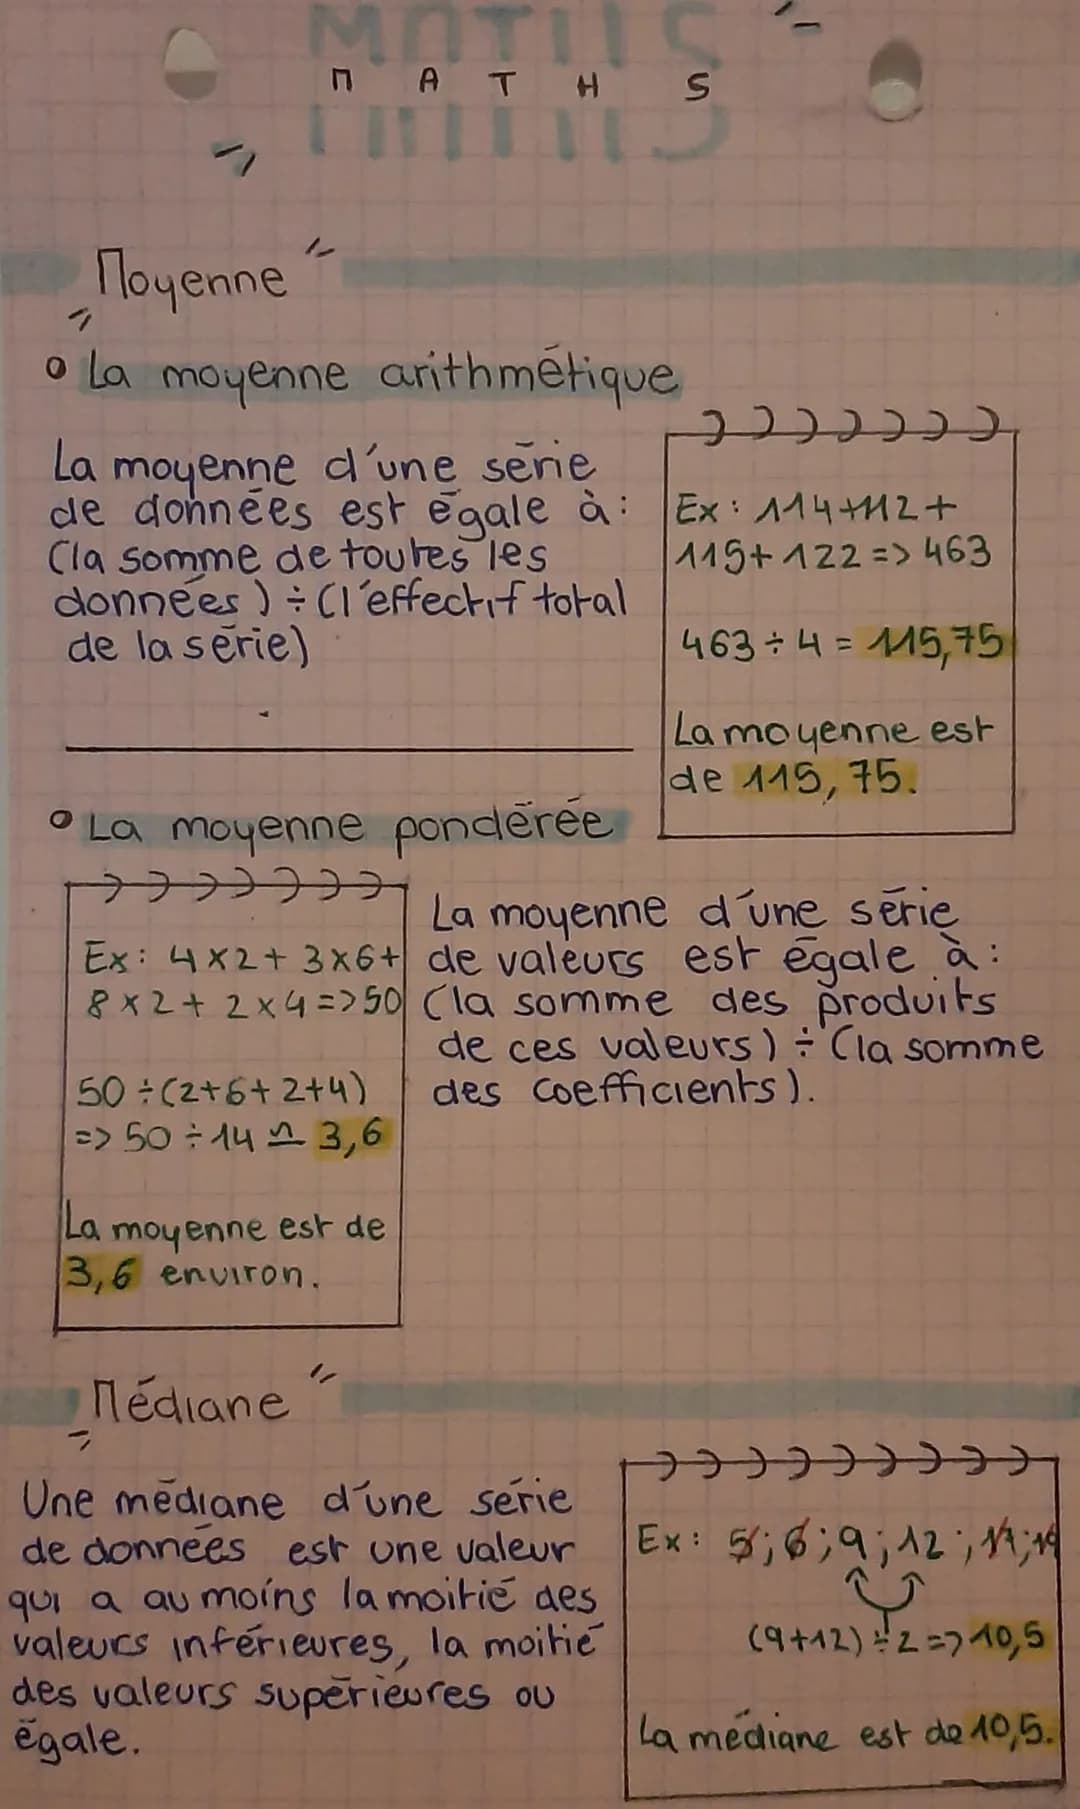 MATHS
MATHS
Moyenne
o La moyenne arithmétique
La moyenne d'une série
de données est égale à :
(la somme de toutes les
données) ÷ (l'effectif total
de la série)
Ex : 114+112+
115+ 122 => 463
463 ÷ 4 = 115,75
La moyenne est
de 115,75.
o La moyenne pondérée
Ex : 4×2+ 3×6+
8×2+ 2×4 => 50
50 ÷ (2+6+2+4)
=> 50 ÷ 14 ≃ 3,6
La moyenne est de
3,6 environ.
La moyenne d'une série
de valeurs est égale à :
(la somme des produits
de ces valeurs) ÷ (la somme
des coefficients).
Médiane
Une médiane d'une série
de données est une valeur
qui a au moins la moitié des
valeurs inférieures, la moitié
des valeurs supérieures ou
égale.
Ex : 5 ; 6 ; 9 ; 12 ;
(9+12) ÷ 2 => 10,5
La médiane est de 10,5.